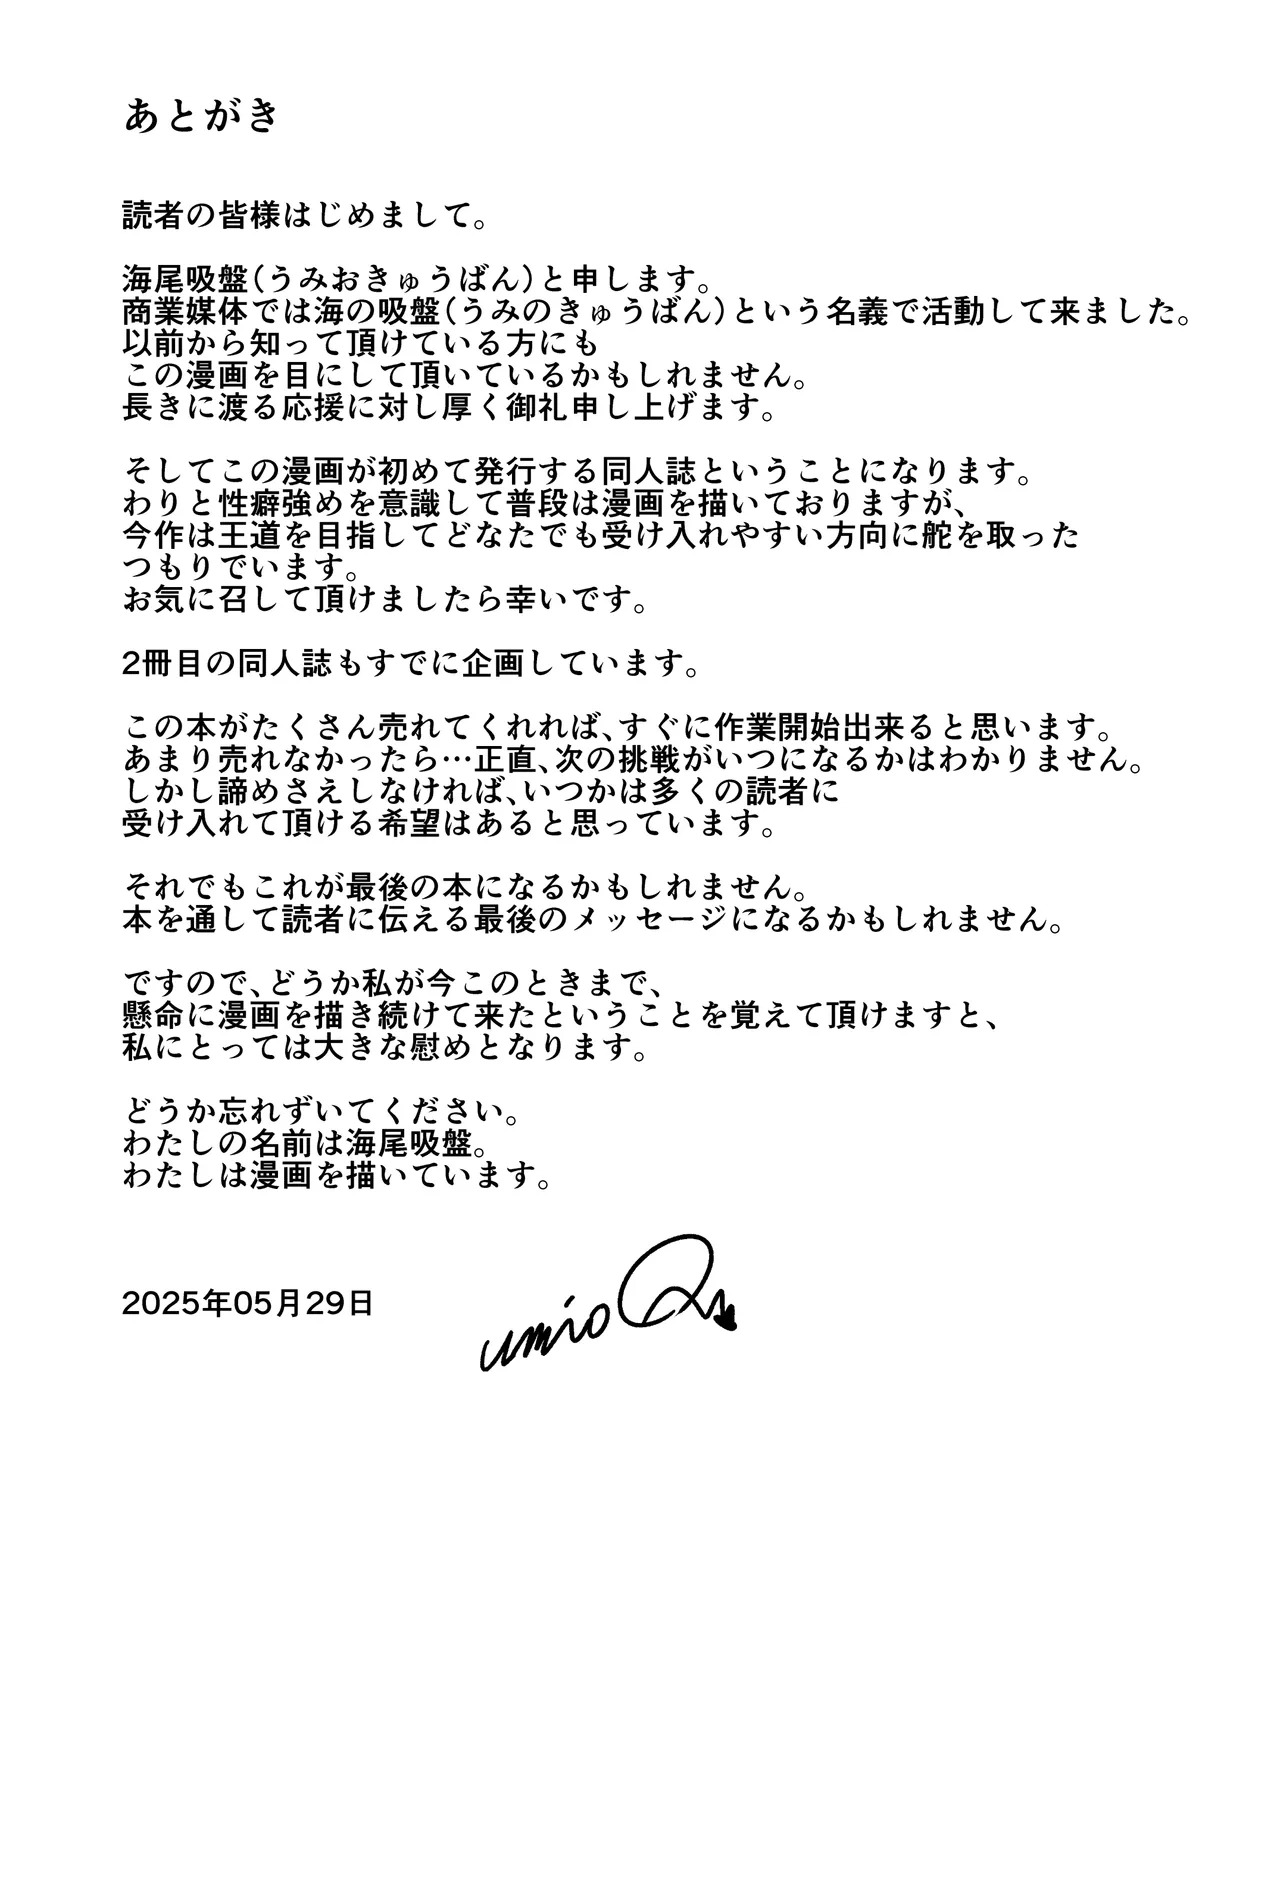 あとがき
読者の皆様はじめまして。
海尾吸盤(うみおきゅうばん)と申します。
商業媒体では海の吸盤(うみのきゅうばん)という名義で活動して来ました。
以前から知って頂けている方にも
この漫画を目にして頂いているかもしれません。
長きに渡る応援に対し厚く御礼申し上げます。
そしてこの漫画が初めて発行する同人誌ということになります。
わりと性癖強めを意識して普段は漫画を描いておりますが、
今作は王道を目指してどなたでも受け入れやすい方向に舵を取った
つもりでいます。
お気に召して頂けましたら幸いです。
2冊目の同人誌もすでに企画しています。
この本がたくさん売れてくれれば、すぐに作業開始出来ると思います。
あまり売れなかったら…正直、次の挑戦がいつになるかはわかりません。
しかし諦めさえしなければ、いつかは多くの読者に
受け入れて頂ける希望はあると思っています。
それでもこれが最後の本になるかもしれません。
本を通して読者に伝える最後のメッセージになるかもしれません。
ですので、どうか私が今このときまで、
懸命に漫画を描き続けて来たということを覚えて頂けますと、
私にとっては大きな慰めとなります。
どうか忘れずいてください。
わたしの名前は海尾吸盤。
わたしは漫画を描いています。
2025年05月29日
umioQ